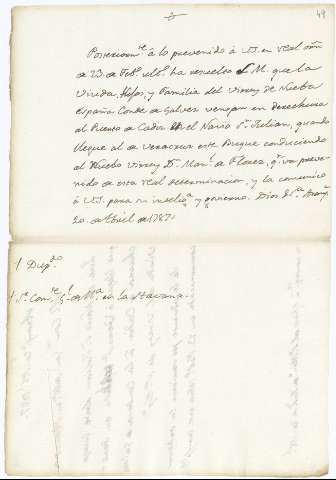 49
Posteriorm.te á lo prevenido á VS. en Real orn
de 23. de Feb.o ult.o ha resuelto el M. que la
Viuda Hijos, y Familia del Virrey de Nueba
España Conde de Galvez vengan en derechura
al Puerto de Cadiz en el Navio S.n Julian, quando
llegue al de Veracruz este Buque conduciendo
al Nuebo Virrey D.n Man.l de Florez, q.n va preve-
nido de esta Real determinacion, y la comunico
á VS. para su intelig.a y govierno. Dios &.a Aranj.z
20. de Abril de 1787.
1 Dup.do
S.r Com.te G.l de M.a en la Havana.